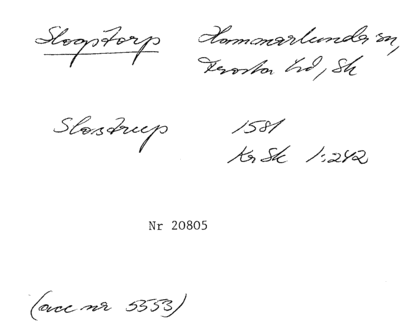 Slogstorp Hammarlunda sn,
Frosta hd, Sk
Slostrup 1581
Kr Sk 1:242
Nr 20805
(acc nr 5553)